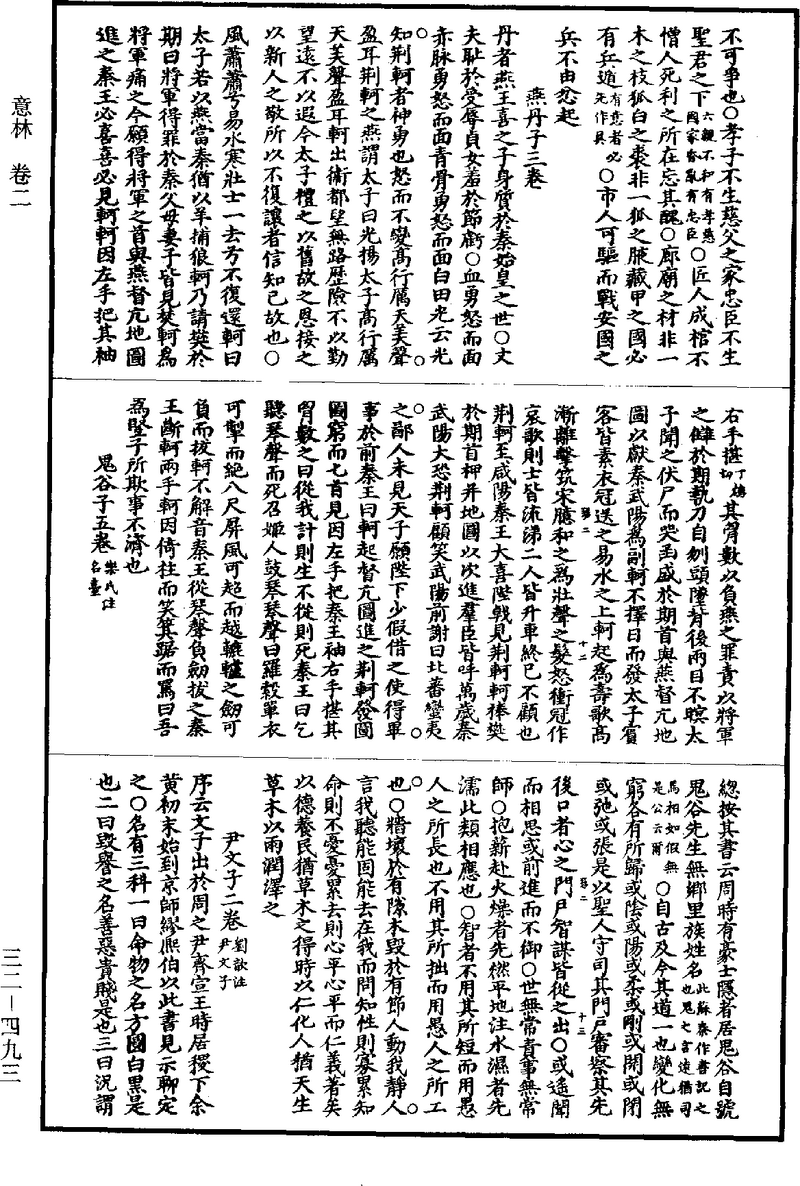 意林 卷二
不可爭也〇孝子不生慈父之家忠臣不生
聖君之下六親不和有孝慈國家昏亂有忠臣〇匠人成棺不
憎人死利之所在忘其醜〇廊廟之材非一
木之枝狐白之裘非一狐之腋藏甲之國必
有兵遁有意者必先作具〇市人可驅而戰安國之
兵不由忿起
燕丹子三卷
丹者燕王喜之子身質於秦始皇之世〇丈
夫恥於受辱貞女羞於節虧〇血勇怒而面
赤脉勇怒而面青骨勇怒而面白田光云光
知荊軻者神勇也怒而不變高行厲天美聲
盈耳荊軻之燕謂太子曰光揚太子高行厲
天美聲盈耳軻出衞都望無路歷險不以勤
望遠不以遐今太子禮之以舊故之恩接之
以新人之敬所以不復讓者信知己故也〇
風蕭蕭兮易水寒壯士一去兮不復還軻曰
太子若以燕當秦猶以羊捕狼軻乃請樊於
期曰將軍得罪於秦父母妻子皆見焚軻爲
將軍痛之今願得將軍之首與燕督亢地圖
進之秦王必喜喜必見軻軻因左手把其袖
右手揕丁鴆切其胷數以負燕之罪責以將軍
之讎於期執刀自刎頭墮背後兩目不瞑太
子聞之伏尸而哭函盛於期首與燕督亢地
圖以獻秦武陽爲副軻不擇日而發太子賓
客皆素衣冠送之易水之上軻起爲壽歌高
漸離擊筑宋臆和之爲壯聲之髮怒衝冠作
哀歌則士皆流涕二人皆升車終已不顧也
荊軻至咸陽秦王大喜陛戟見荊軻軻捧樊
於期首柙幷地圖以次進羣臣皆呼萬歲秦
武陽大恐荊軻顧笑武陽前謝曰北蕃蠻夷
之鄙人未見天子願陛下少假借之使得畢
事於前秦王曰軻起督亢圖進之荊軻發圖
圖窮而匕首見因左手把秦王袖右手揕其
胷數之曰從我計則生不從則死秦王曰乞
聽琴聲而死召姬人鼓琴琴聲曰羅縠單衣
可掣而絕八尺屏風可超而越轆轤之劒可
負而拔軻不解音秦王從琴聲負劒拔之秦
王斷軻兩手軻因倚柱而笑箕踞而罵曰吾
爲豎子所欺事不濟也
鬼谷子五卷樂氏注名臺
總按其書云周時有豪士隱者居鬼谷自號
鬼谷先生無鄉里族姓名此蘇秦作書記之也鬼之言遠猶司馬相如假無是公云爾〇自古及今其道一也變化無
窮各有所歸或陰或陽或柔或剛或開或閉
或弛或張是以聖人守司其門戶審察其先
後口者心之門戶智謀皆從之出〇或遙聞
而相思或前進而不御〇世無常貴事無常
師〇抱薪赴火燥者先燃平地注水濕者先
濡此類相應也〇智者不用其所短而用愚
人之所長也不用其所拙而用愚人之所工
也〇牆壞於有隙木毀於有節人動我靜人
言我聽能固能去在我而問知性則寡累知
命則不憂憂累去則心平心平而仁義著矣
以德養民猶草木之得時以仁化人猶天生
草木以雨潤澤之
尹文子二卷劉歆注尹文子
序云文子出於周之尹齊宣王時居稷下余
黃初末始到京師繆熙伯以此書見示聊定
之〇名有三科一曰命物之名方圓白黑是
也二曰毀譽之名善惡貴賤是也三曰況謂
三二—四九三